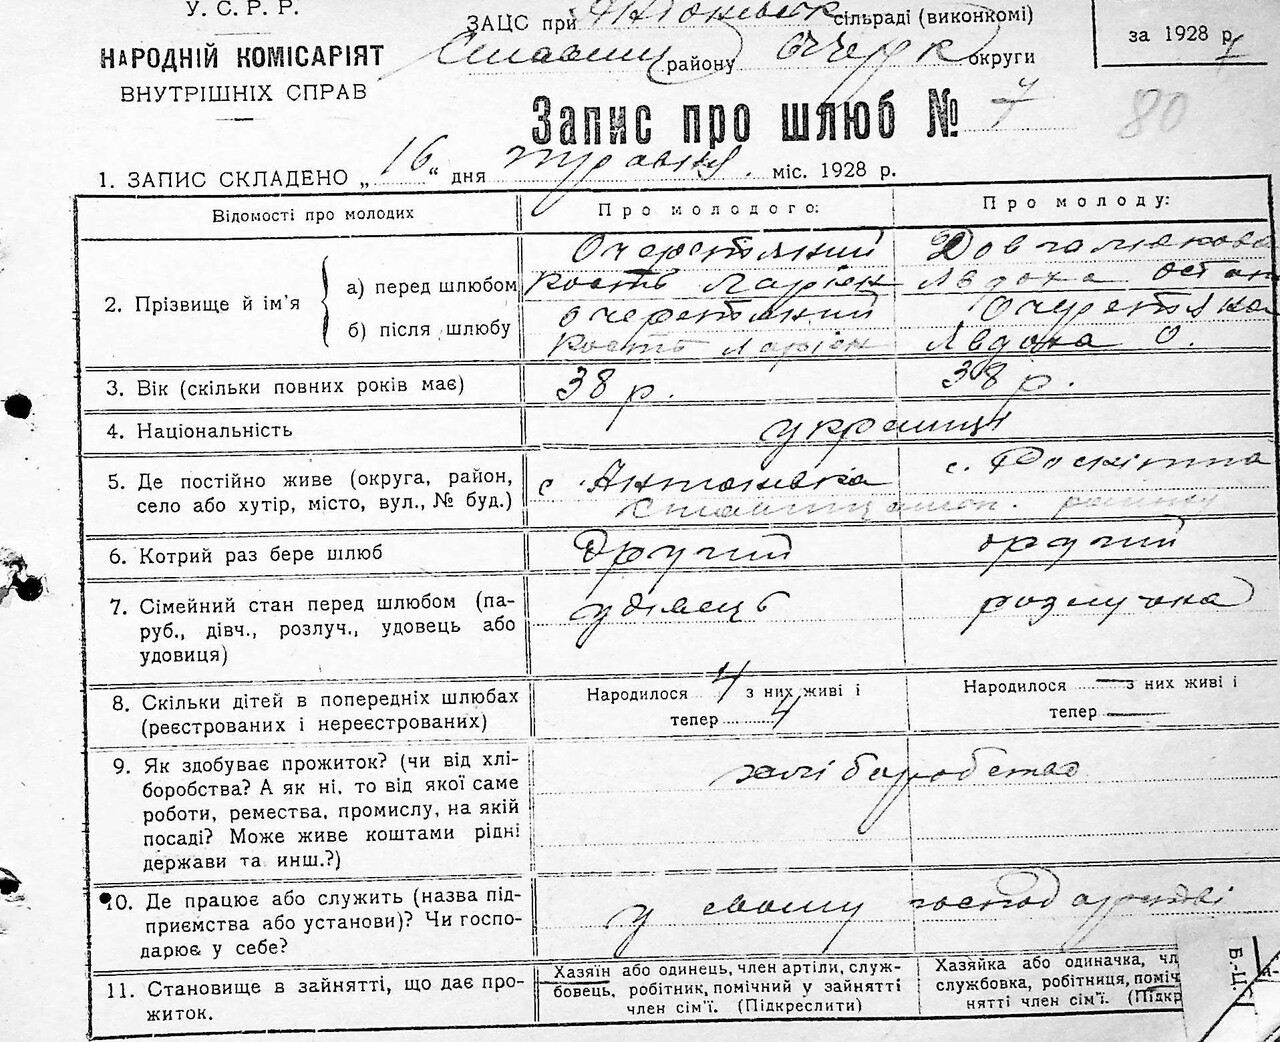 У. С. Р. Р.
НАРОДНІЙ КОМІСАРІЯТ
ВНУТРІШНІХ СПРАВ
ЗАЦС при сільраді (виконкомі)
району округи
за 1928 р.
Запис про шлюб № 7
80
1. ЗАПИС СКЛАДЕНО „ 16 “ дня травня міс. 1928 р.
Відомості про молодих
Про молодого:
Про молоду:
2. Прізвище й ім'я
а) перед шлюбом
Очеретяний
Кость Ларіон
Довгалюкова
Явдоха Остап
б) після шлюбу
Очеретяний
Кость Ларіон
Очеретяна
Явдоха О.
3. Вік (скільки повних років має)
38 р.
38 р.
4. Національність
українці
5. Де постійно живе (округа, район,
село або хутір, місто, вул., № буд.)
с. Антонівка
с. Розкішна
району
6. Котрий раз бере шлюб
Другий
другий
7. Сімейний стан перед шлюбом (па-
руб., дівч., розлуч., удовець або
удовиця)
удівець
розлучена
8. Скільки дітей в попередніх шлюбах
(реєстрованих і нереєстрованих)
Народилося 4 з них живі і
тепер 4
Народилося — з них живі і
тепер —
9. Як здобуває прожиток? (чи від хлі-
боробства? А як ні, то від якої саме
роботи, ремества, промислу, на якій
посаді? Може живе коштами рідні
держави та инш.?)
хліборобство
10. Де працює або служить (назва під-
приємства або установи)? Чи госпо-
дарює у себе?
у свойму господарстві
11. Становище в зайнятті, що дає про-
житок.
Хазяїн або одинець, член артіли, служ-
бовець, робітник, помічний у зайнятті
член сім'ї. (Підкреслити)
Хазяйка або одиначка, чл
службовка, робітниця, поміч
нятті член сім'ї. (Підкр